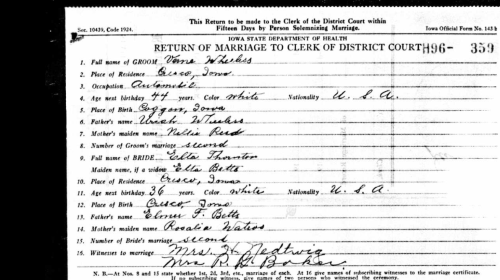 This Return to be made to the Clerk of the District Court within
Sec. 10439, Code 1924. Fifteen Days by Person Solemnizing Marriage. Iowa Official Form No. 143
IOWA STATE DEPARTMENT OF HEALTH
RETURN OF MARRIAGE TO CLERK OF DISTRICT COURT H96- 359
1. Full name of GROOM Vane Wheeler
2. Place of Residence Cresco, Iowa
3. Occupation
4. Age next birthday 44 years. Color White Nationality U. S. A.
5. Place of Birth Coggon, Iowa
6. Father's name Uriah Wheeler
7. Mother's maiden name Nellie Reed
8. Number of Groom's marriage second
9. Full name of BRIDE Etta Thornton
Maiden name, if a widow Etta Betts
10. Place of Residence Cresco, Iowa
11. Age next birthday 36 years. Color White Nationality U. S. A.
12. Place of Birth Cresco Iowa
13. Father's name Elmer F. Betts
14. Mother's maiden name Rosalia Waters
15. Number of Bride's marriage second
16. Witnesses to marriage Mrs. H. Nedtwig
Mrs R. G. Baker
N. B.—At Nos. 8 and 15 state whether 1st, 2d, 3rd, etc., marriage of each. At 16 give names of subscribing witnesses to the marriage certificate.
If no subscribing witness, give names of two persons who witnessed the ceremony.